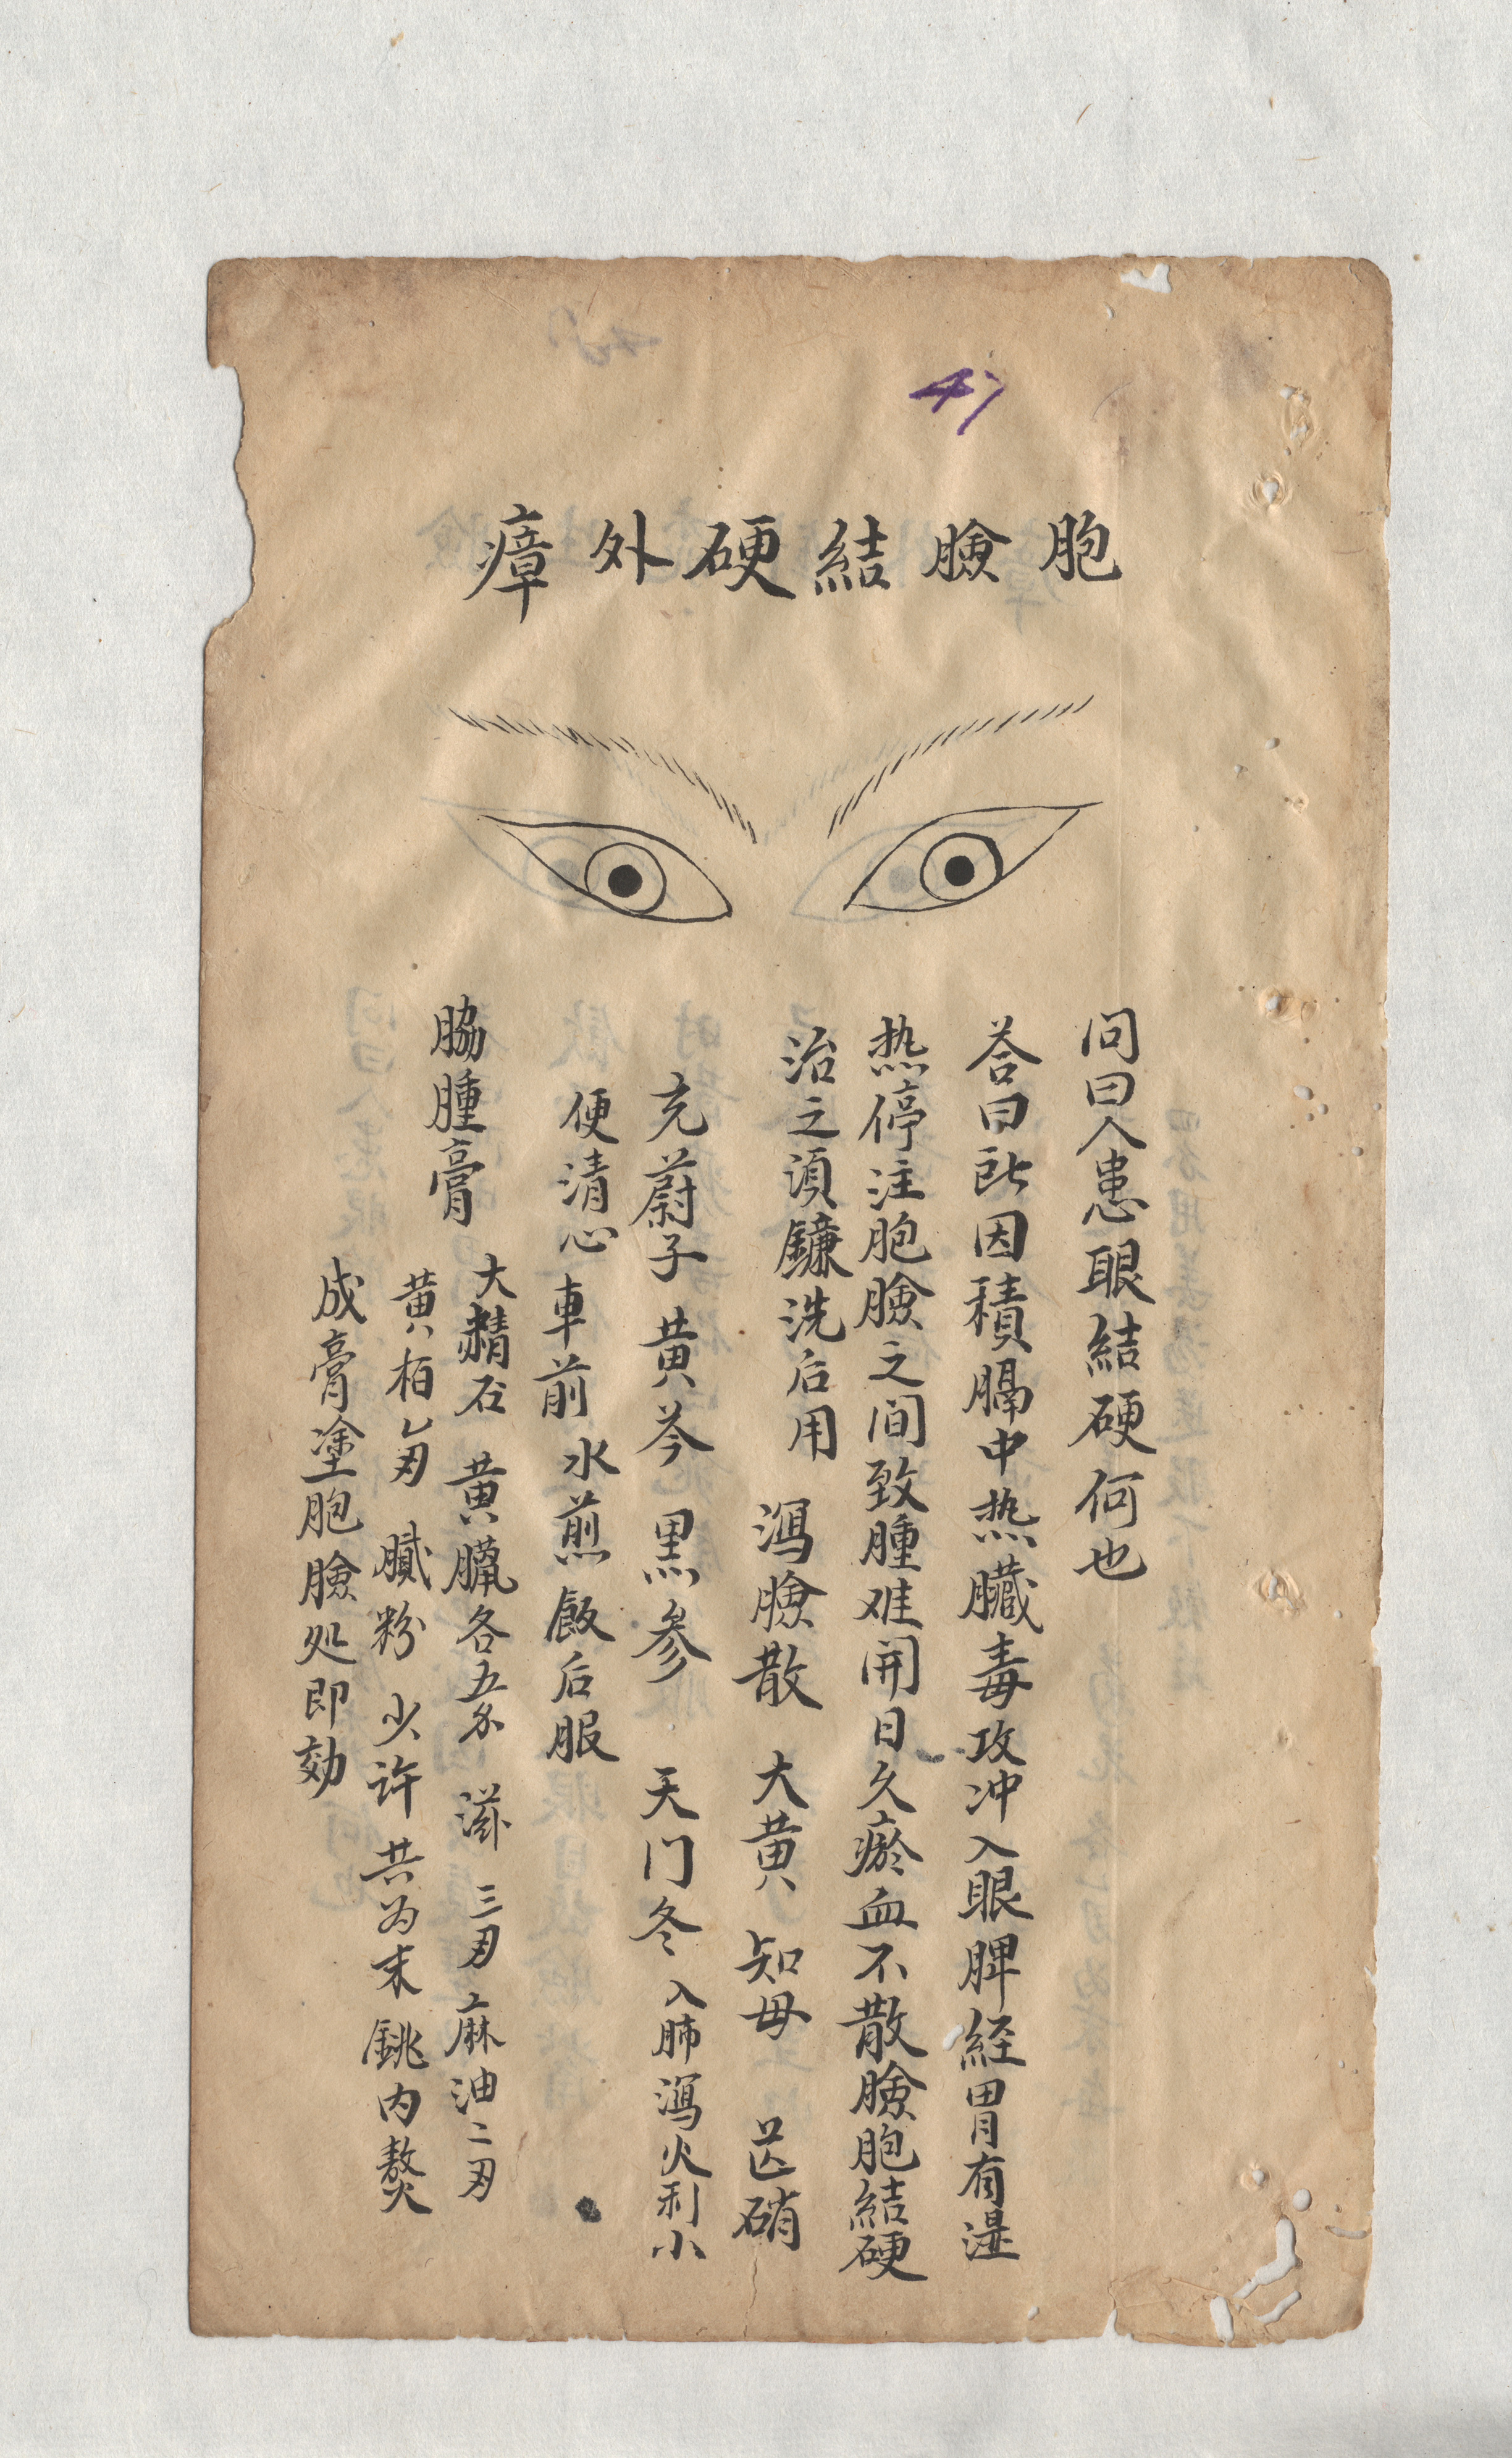 47
胞臉結硬外瘴
问曰人患眼結硬何也
荅曰此因積膈中热臟毒攻冲入眼脾経胃有湿
热停注胞臉之间致腫难開日久瘀血不散臉胞結硬
治之須鐮洗后用 瀉臉散 大黄 知母 芒硝
充蔚子 黄芩 黑参 天门冬 入肺瀉火利小
便清心 車前 水煎飯后服
脇腫膏 大赭石 黄臘各五分 滋 三刄 麻油二刄
黄栢乙匁 膩粉 少许 共为末 銚内熬
成膏塗胞臉処即効